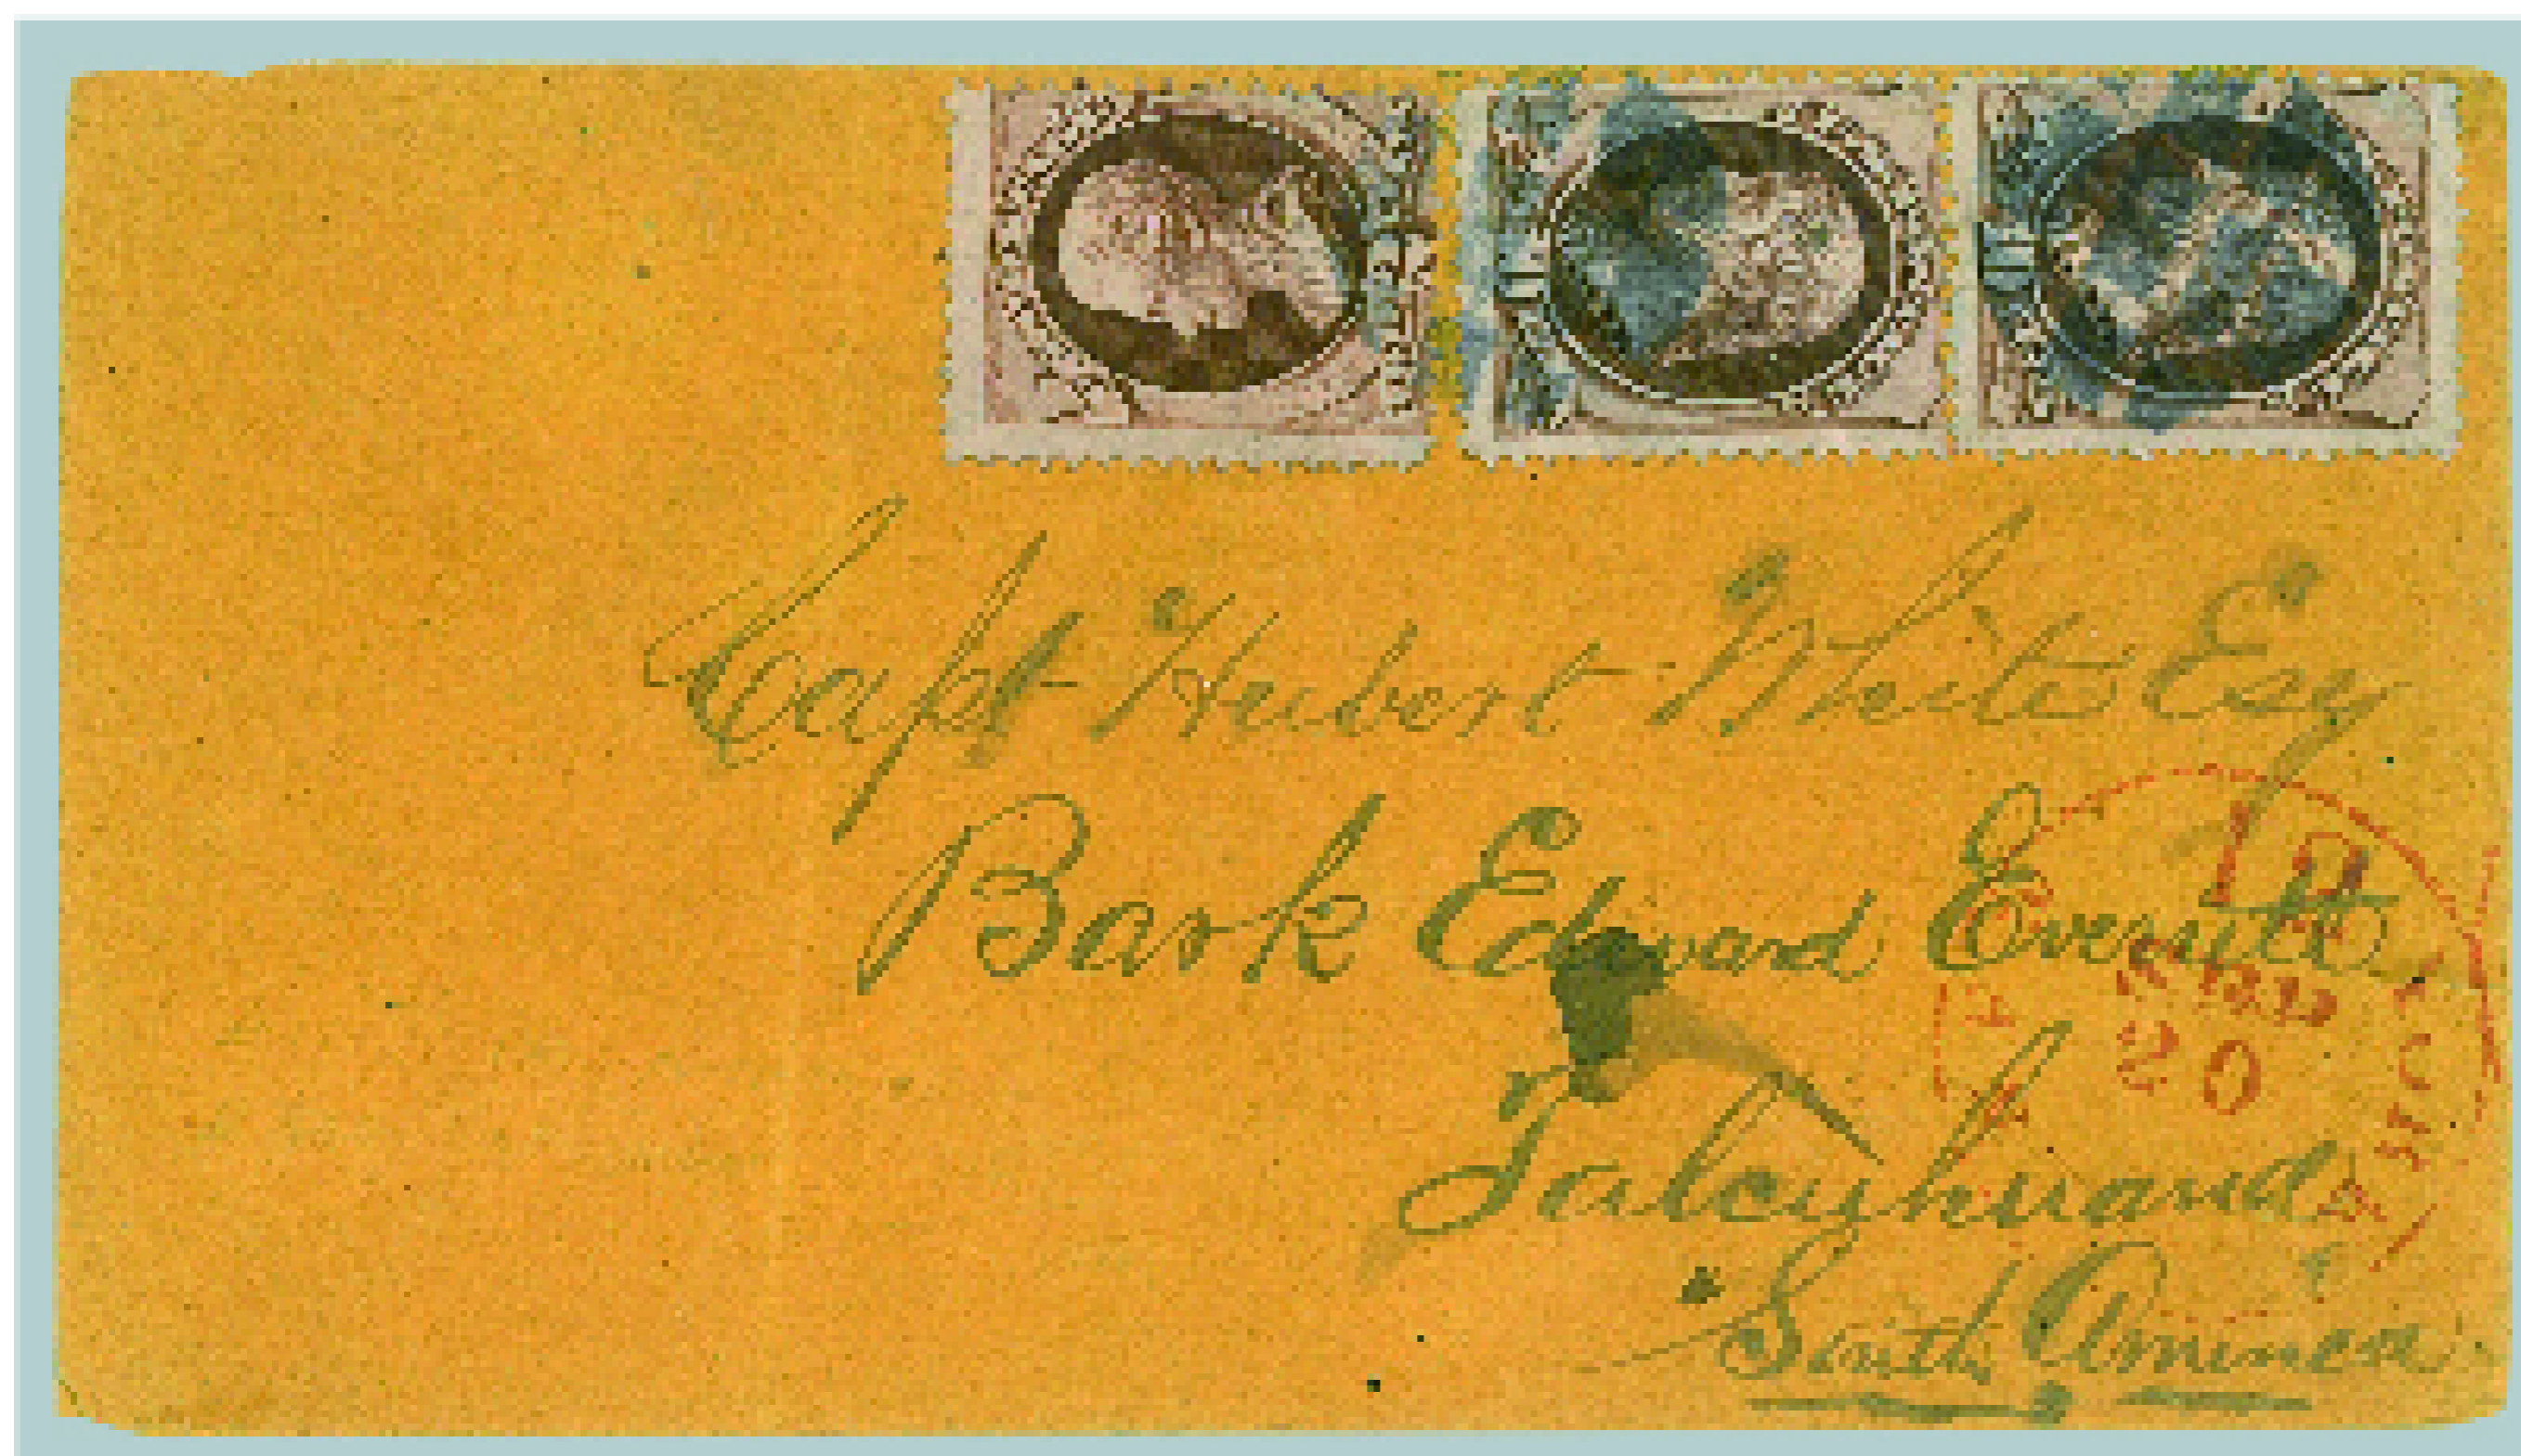 Capt Hubert White Esq
Bark Edward Everett
Talcyhuand
South America
20